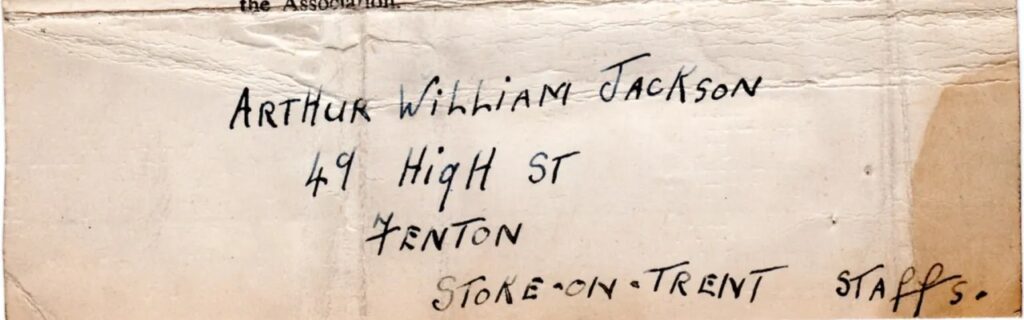 the Association.
ARTHUR WILLIAM JACKSON
49 HIGH ST
FENTON
STOKE-ON-TRENT STAFFS.